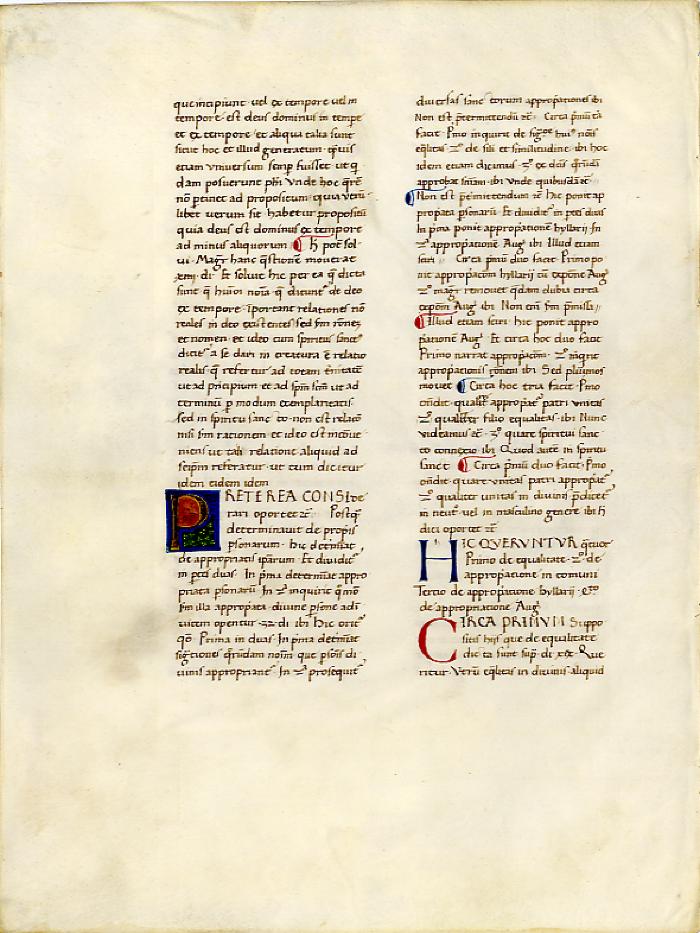 que incipiunt · vel ex tempore vel in
tempore · est deus dominus in tempe
et ex tempore · et aliqua talia sunt
sicut hoc et illud generatum · quis
etiam universum semp fuisset · ut q
dam posuerunt phi Vnde hoc qre
no ptinet ad propositum · quia veru
libet verum sit habetur propositu
quia deus est dominus ex tempore
ad minus aliquorum
vi · Magr hanc questione
di · Et solvit hic per ea q dicta
sunt q noia q dicunt de deo
ex tempore · iportant relationes no
reales in deo existentes sed fm rones
et nomen · et ideo cum spiritus sanct
dicit a se dari in creatura e relatio
realis · q refert ad totam trinitate
ut ad principium et ad spm scm ut ad
terminu p modum exemplaritatis
sed in spiritu sancto · non est relatio
nisi fm rationem et ideo est incove
niens ut tali relatione aliquid ad
seipm referatur · ut cum dicitur
idem eidem idem
PRETEREA CONSIDE
rari oportet &c · Postq
determinavit de propis
psonarum · hic determiat
de appropriatis iparum · Et dividit
in ptes duas · In pma determiat appro
priata psonaru · In 2a inquirit q mo
fm illa appropriata · divine psone
· di · ibi Hic orit
qo · Prima in duas · In pma determiat
quarudam noim · que psois di
vinis appropriant · In 2a prosequit
diversas sanctorum appropriationes ibi
Non est ptermittendu &c · Circa pmu
facit · Pmo inquirit de hui nois
eqlitas · 2o de sili et similitudine · ibi hoc
idem etiam dicimus
approbat · ibi · Vnde quibusda &c
Non est ptermittendum &c Hic ponit ap
propriata psonaru · Et dividit in ptes duas
In pma ponit appropriatione hyllarij · In
2a appropriatione Aug · ibi · Illud etiam
sciri · Circa pmu duo facit · Primo po
nit appropriacom hyllarij cu expone Aug
2o magr removet qdam dubia circa
expom Aug · ibi · Non em fm
Illud etiam sciri · hic ponit appro
priatione Aug · Et circa hoc duo facit
Primo narrat appropriacom · 2o inqrit
appropriationis ronem ibi · Sed plurimos
movet Circa hoc tria facit · Pmo
ondit · qualit appropriat patri unitas
2o qualiter filio equalitas · ibi Nunc
videamus &c · 3o quare spiritui sanc
to connexio · ibi · Quod aute in spiritu
sanct Circa pmu duo facit · Pmo
ondit · quare unitas patri appropriat
2o qualiter unitas in divinis pdicet
in neut · vel in masculino genere ibi
dici oportet &c
HIC QVERVNTVR qtuor
Primo de equalitate · 2o de
appropriatione in comuni
Tertio de appropriatione hyllarij · 4o
de appropriatione Aug
CIRCA PRIMVM Suppo
sitis hijs que de equalitate
dicta sunt sup · di · xix · Que
ritur · Vtru eqlitas in divinis aliquid